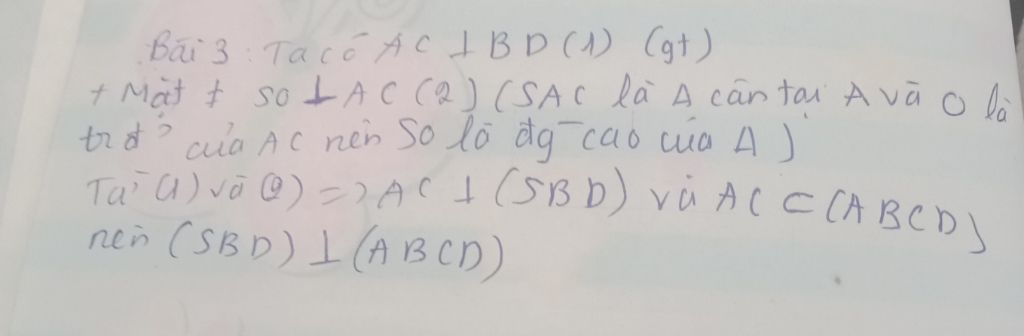 Bài 3: Ta có AC ⊥ BD (1) (gt)
+ Mặt ≠ SO ⊥ AC (2) (SAC là Δ cân tại A và O là
trđ² của AC nên SO là đg cao của Δ)
Từ (1) và (2) => AC ⊥ (SBD) và AC ⊂ (ABCD)
nên (SBD) ⊥ (ABCD)